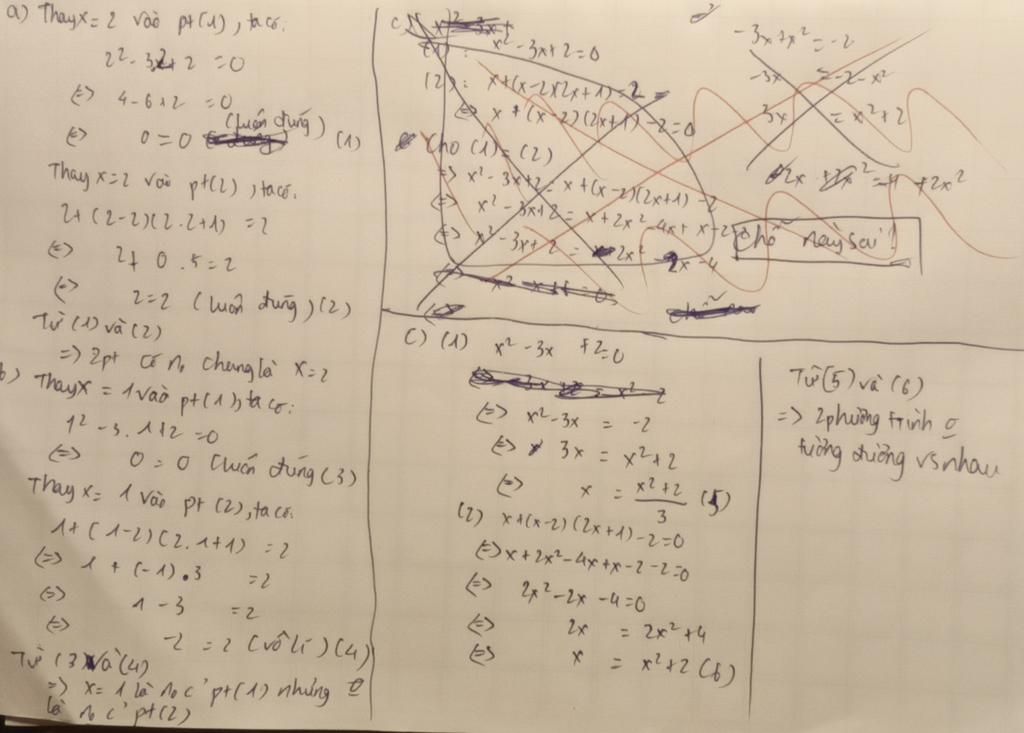 a) Thay x = 2 vào pt(1), ta có:
2² - 3.2 + 2 = 0
<=> 4 - 6 + 2 = 0
<=> 0 = 0 (luôn đúng) (1)
Thay x = 2 vào pt(2), ta có:
2 + (2-2)(2.2+1) = 2
<=> 2 + 0.5 = 2
<=> 2 = 2 (luôn đúng) (2)
Từ (1) và (2)
=> 2pt có n₀ chung là x = 2
b) Thay x = 1 vào pt(1), ta có:
1² - 3.1 + 2 = 0
<=> 0 = 0 (luôn đúng (3)
Thay x = 1 vào pt (2), ta có:
1 + (1-2)(2.1+1) = 2
<=> 1 + (-1).3 = 2
<=> 1 - 3 = 2
<=> -2 = 2 (vô lí) (4)
Từ (3) và (4)
=> x = 1 là n₀ c' pt(1) nhưng ō
là n₀ c' pt(2)
c)
(1): x² - 3x + 2 = 0
(2): x + (x-2)(2x+1) = 2
<=> x + (x-2)(2x+1) - 2 = 0
Cho (1) = (2)
=> x² - 3x + 2 = x + (x-2)(2x+1) - 2
<=> x² - 3x + 2 = x + 2x² - 4x + x - 2 - 2
<=> x² - 3x + 2 = 2x² - 2x - 4
-3x + x² = -2
-3x = -2 - x²
3x = x² + 2
Chỗ này sai!
c) (1) x² - 3x + 2 = 0
<=> x² - 3x = -2
<=> 3x = x² + 2
<=> x = x²+2/3 (5)
(2) x + (x-2)(2x+1) - 2 = 0
<=> x + 2x² - 4x + x - 2 - 2 = 0
<=> 2x² - 2x - 4 = 0
<=> 2x = 2x² + 4
<=> x = x² + 2 (6)
Từ (5) và (6)
=> 2 phương trình ō
tương đương vs nhau